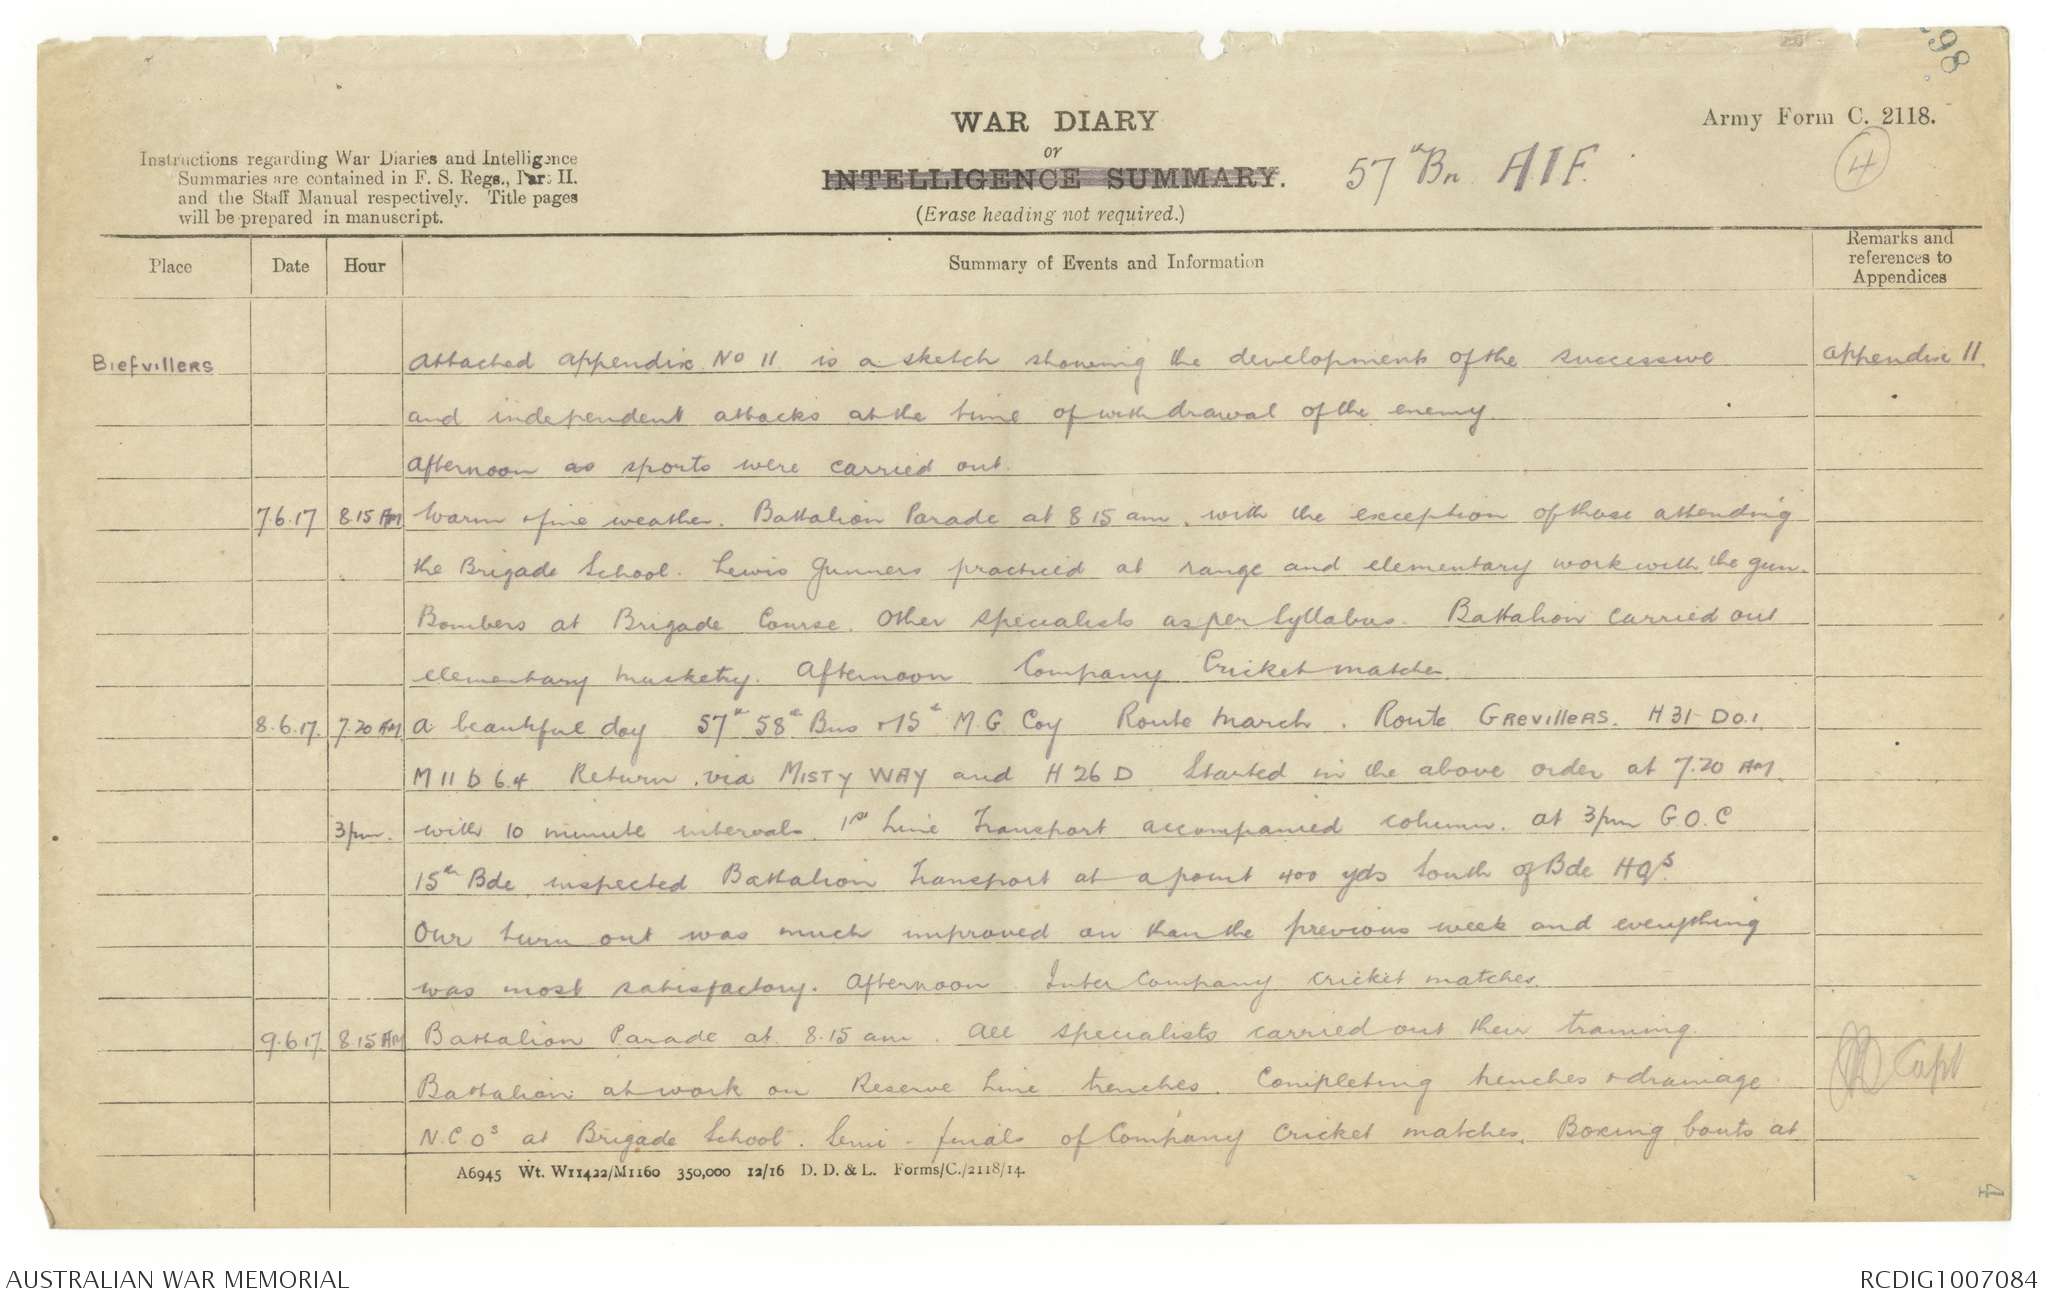 98
WAR DIARY
or
INTELLIGENCE SUMMARY.
(Erase heading not required.)
57th Bn AIF.
Army Form C. 2118.
4
Instructions regarding War Diaries and Intelligence
Summaries are contained in F. S. Regs., Part II.
and the Staff Manual respectively. Title pages
will be prepared in manuscript.
Place Date Hour Summary of Events and Information Remarks and references to Appendices
Biefvillers Attached appendix No 11 is a sketch showing the developments of the successive appendix 11.
and independent attacks at the time of withdrawal of the enemy.
Afternoon as sports were carried out.
7.6.17 8.15 AM Warm & fine weather. Battalion Parade at 8 15 am, with the exception of those attending
the Brigade School. Lewis Gunners practiced at range and elementary work with the gun.
Bombers at Brigade Course. Other specialists as per Syllabus. Battalion carried out
elementary musketry. Afternoon Company Cricket matches.
8.6.17. 7.20 AM. A beautiful day 57th 58th Bns & 15th M.G Coy Route March. Route GREVILLERS. H 31 D 0.1
M 11 b 6.4 Return via MISTY WAY and H 26 D Started in the above order at 7.20 AM.
3pm. with 10 minute intervals. 1st Line Transport accompanied column. At 3pm G.O.C
15th Bde inspected Battalion Transport at a point 400 yds South of Bde HQs.
Our turn out was much improved on than the previous week and everything
was most satisfactory. Afternoon Inter Company cricket matches.
9.6.17 8.15 AM Battalion Parade at 8.15 am. All specialists carried out their training.
Battalion at work on Reserve Line trenches. Completing trenches & drainage
N.C.Os at Brigade School. Semi-finals of Company Cricket matches. Boxing bouts at
Capt
A6945 Wt. W11422/M1160 350,000 12/16 D. D. & L. Forms/C./2118/14.
4
AUSTRALIAN WAR MEMORIAL
RCDIG1007084